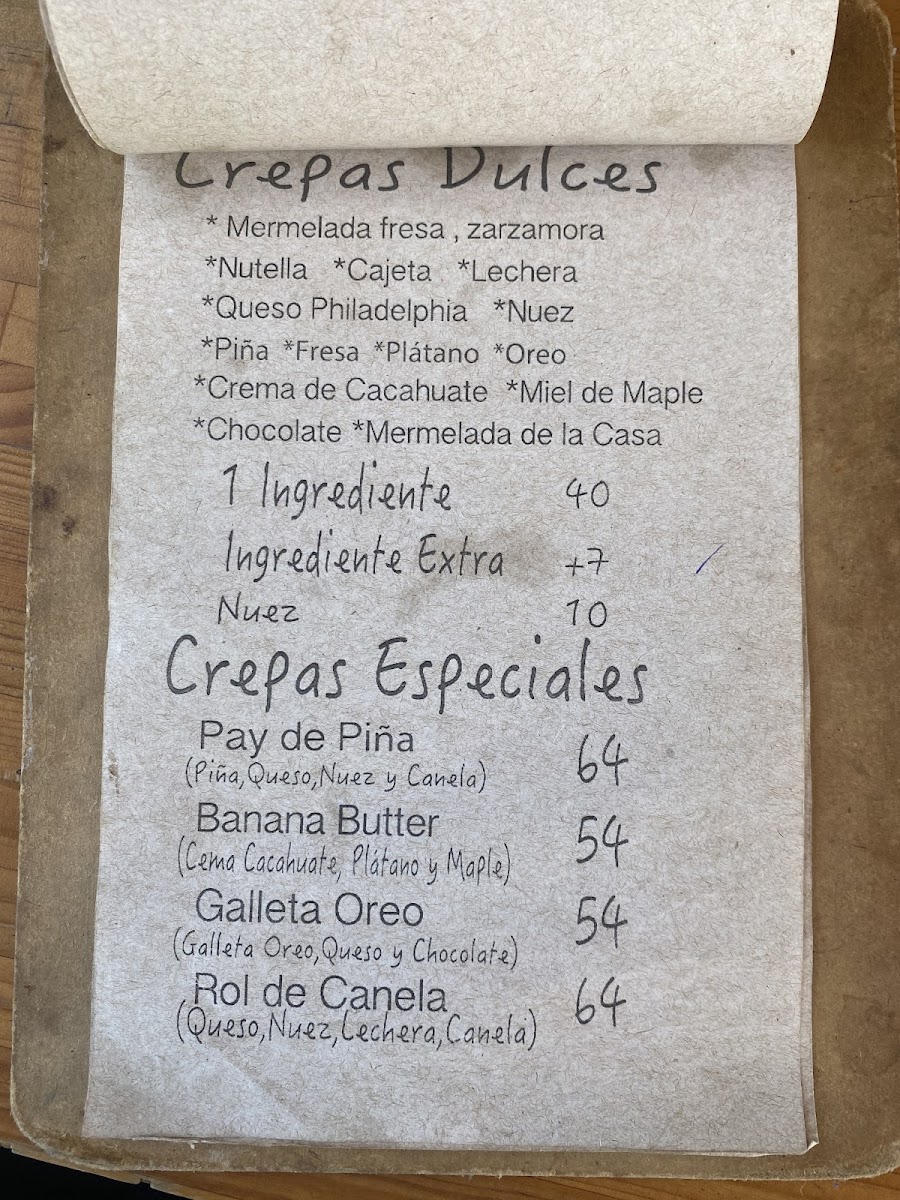 Crepas Dulces
* Mermelada fresa , zarzamora
*Nutella *Cajeta *Lechera
*Queso Philadelphia *Nuez
*Piña *Fresa *Plátano *Oreo
*Crema de Cacahuate *Miel de Maple
*Chocolate *Mermelada de la Casa
1 Ingrediente 40
Ingrediente Extra +7
Nuez 10
Crepas Especiales
Pay de Piña 64
(Piña,Queso,Nuez y Canela)
Banana Butter 54
(Cema Cacahuate, Plátano y Maple)
Galleta Oreo 54
(Galleta Oreo,Queso y Chocolate)
Rol de Canela 64
(Queso,Nuez,Lechera,Canela)